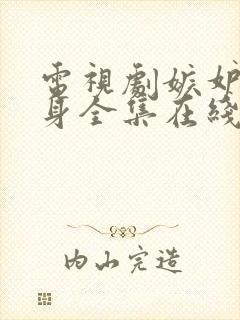 電視劇嫉妒
身全集在綫
内山完造